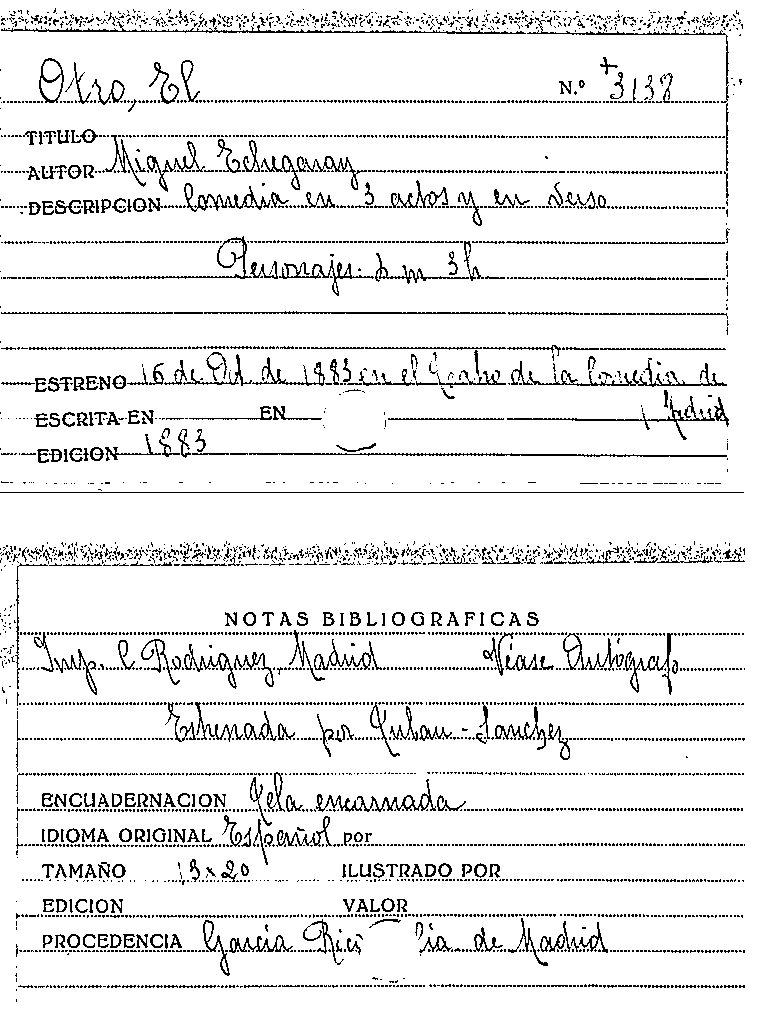 Otro, El N.º +3138
TITULO
AUTOR Miguel Echegaray
DESCRIPCION Comedia en 3 actos y en verso
Personajes: m 3h
ESTRENO 16 de Oct de 1883 en el Teatro de la Comedia de
ESCRITA EN EN Madrid
EDICION 1883
NOTAS BIBLIOGRAFICAS
Imp. C Rodriguez, Madrid Véase Autógrafo
Estrenada por Tubau-Sanchez
ENCUADERNACION Tela encarnada
IDIOMA ORIGINAL Español por
TAMAÑO 13x20 ILUSTRADO POR
EDICION VALOR
PROCEDENCIA Garcia Rico ia de Madrid